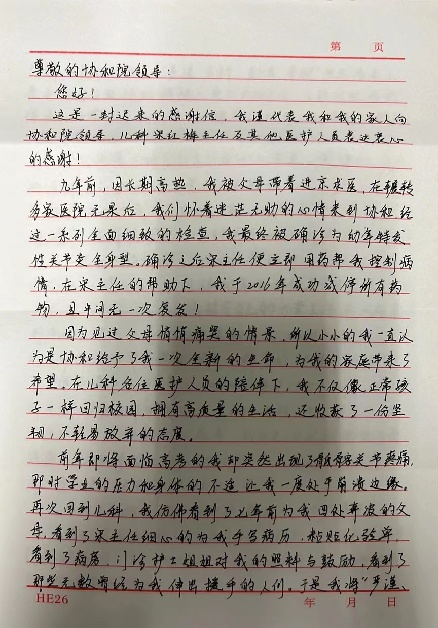 第 页
尊敬的协和院领导：
您好！
这是一封迟来的感谢信，我谨代表我和我的家人向
协和院领导，儿科宋红梅主任及其他医护人员表达衷心
的感谢！
九年前，因长期高热，我被父母带着进京求医，在辗转
多家医院无果后，我们怀着迷茫无助的心情来到协和经
过一系列全面细致的检查，我最终被确诊为幼年特发
性关节炎全身型。确诊之后宋主任便立即用药帮我控制病
情，在宋主任的帮助下，我于2016年成功减停所有药
物，且中间无一次复发！
因为见过父母悄悄痛哭的情景，所以小小的我一直认
为是协和给予了我一次全新的生命，为我的家庭带来了
希望。在儿科各位医护人员的陪伴下，我不仅像正常孩
子一样回归校园，拥有高质量的生活，还收获了一份坚
韧，不轻易放弃的态度。
前年即将面临高考的我却突然出现了骶髂关节疼痛，
那时学业的压力和身体的不适让我一度处于崩溃边缘。
再次回到儿科，我仿佛看到了九年前为我四处奔波的父
母，看到了宋主任细心的为我手写病历，粘贴化验单，
看到了病房、门诊护士姐姐对我的照料与鼓励，看到了
那些无数曾经为我伸出援手的人们。于是我将“严谨、
HE26 年 月 日